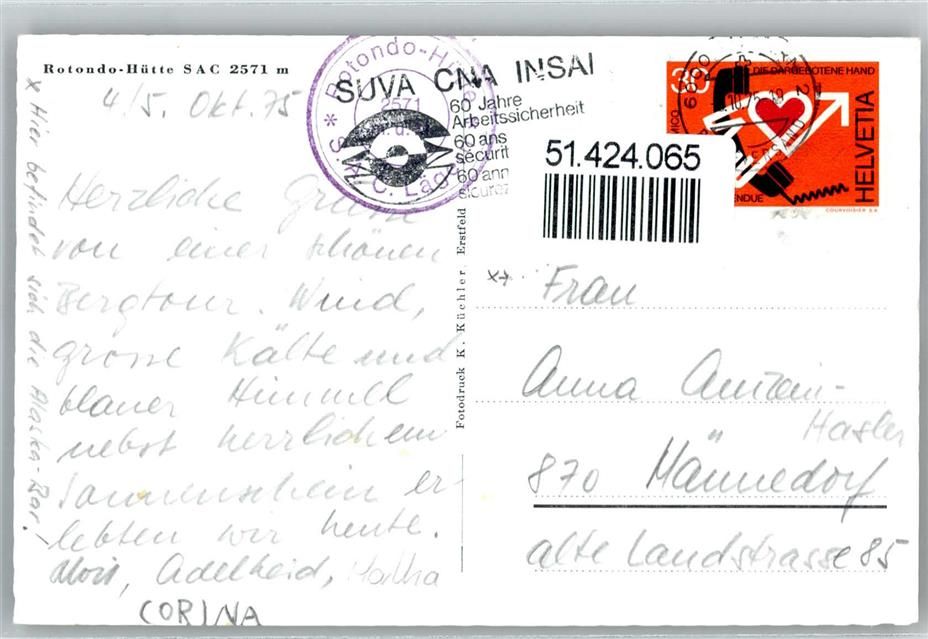 Rotondo-Hütte SAC 2571 m
4/5. Okt. 75
Herzliche Grüsse
von einer schönen
Bergtour. Wind,
grosse Kälte und
blauer Himmel
nebst herrlichem
Sonnenschein er-
lebten wir heute.
Alois, Adelheid,
CORINA
x Hier befindet sich die Alaska-Bar!
Fotodruck K. Küchler. Erstfeld
Rotondo-Hütte
2571
S.A.C.
SUVA CNA INSAI
60 Jahre
Arbeitssicherheit
60 ans
sécurit
60 ann
sicurez
51.424.065
30
DIE DARGEBOTENE HAND
HELVETIA
ENDUE
COURVOISIER S.A.
Frau
Anna
Hasler
870 Männedorf
alte Landstrasse 85